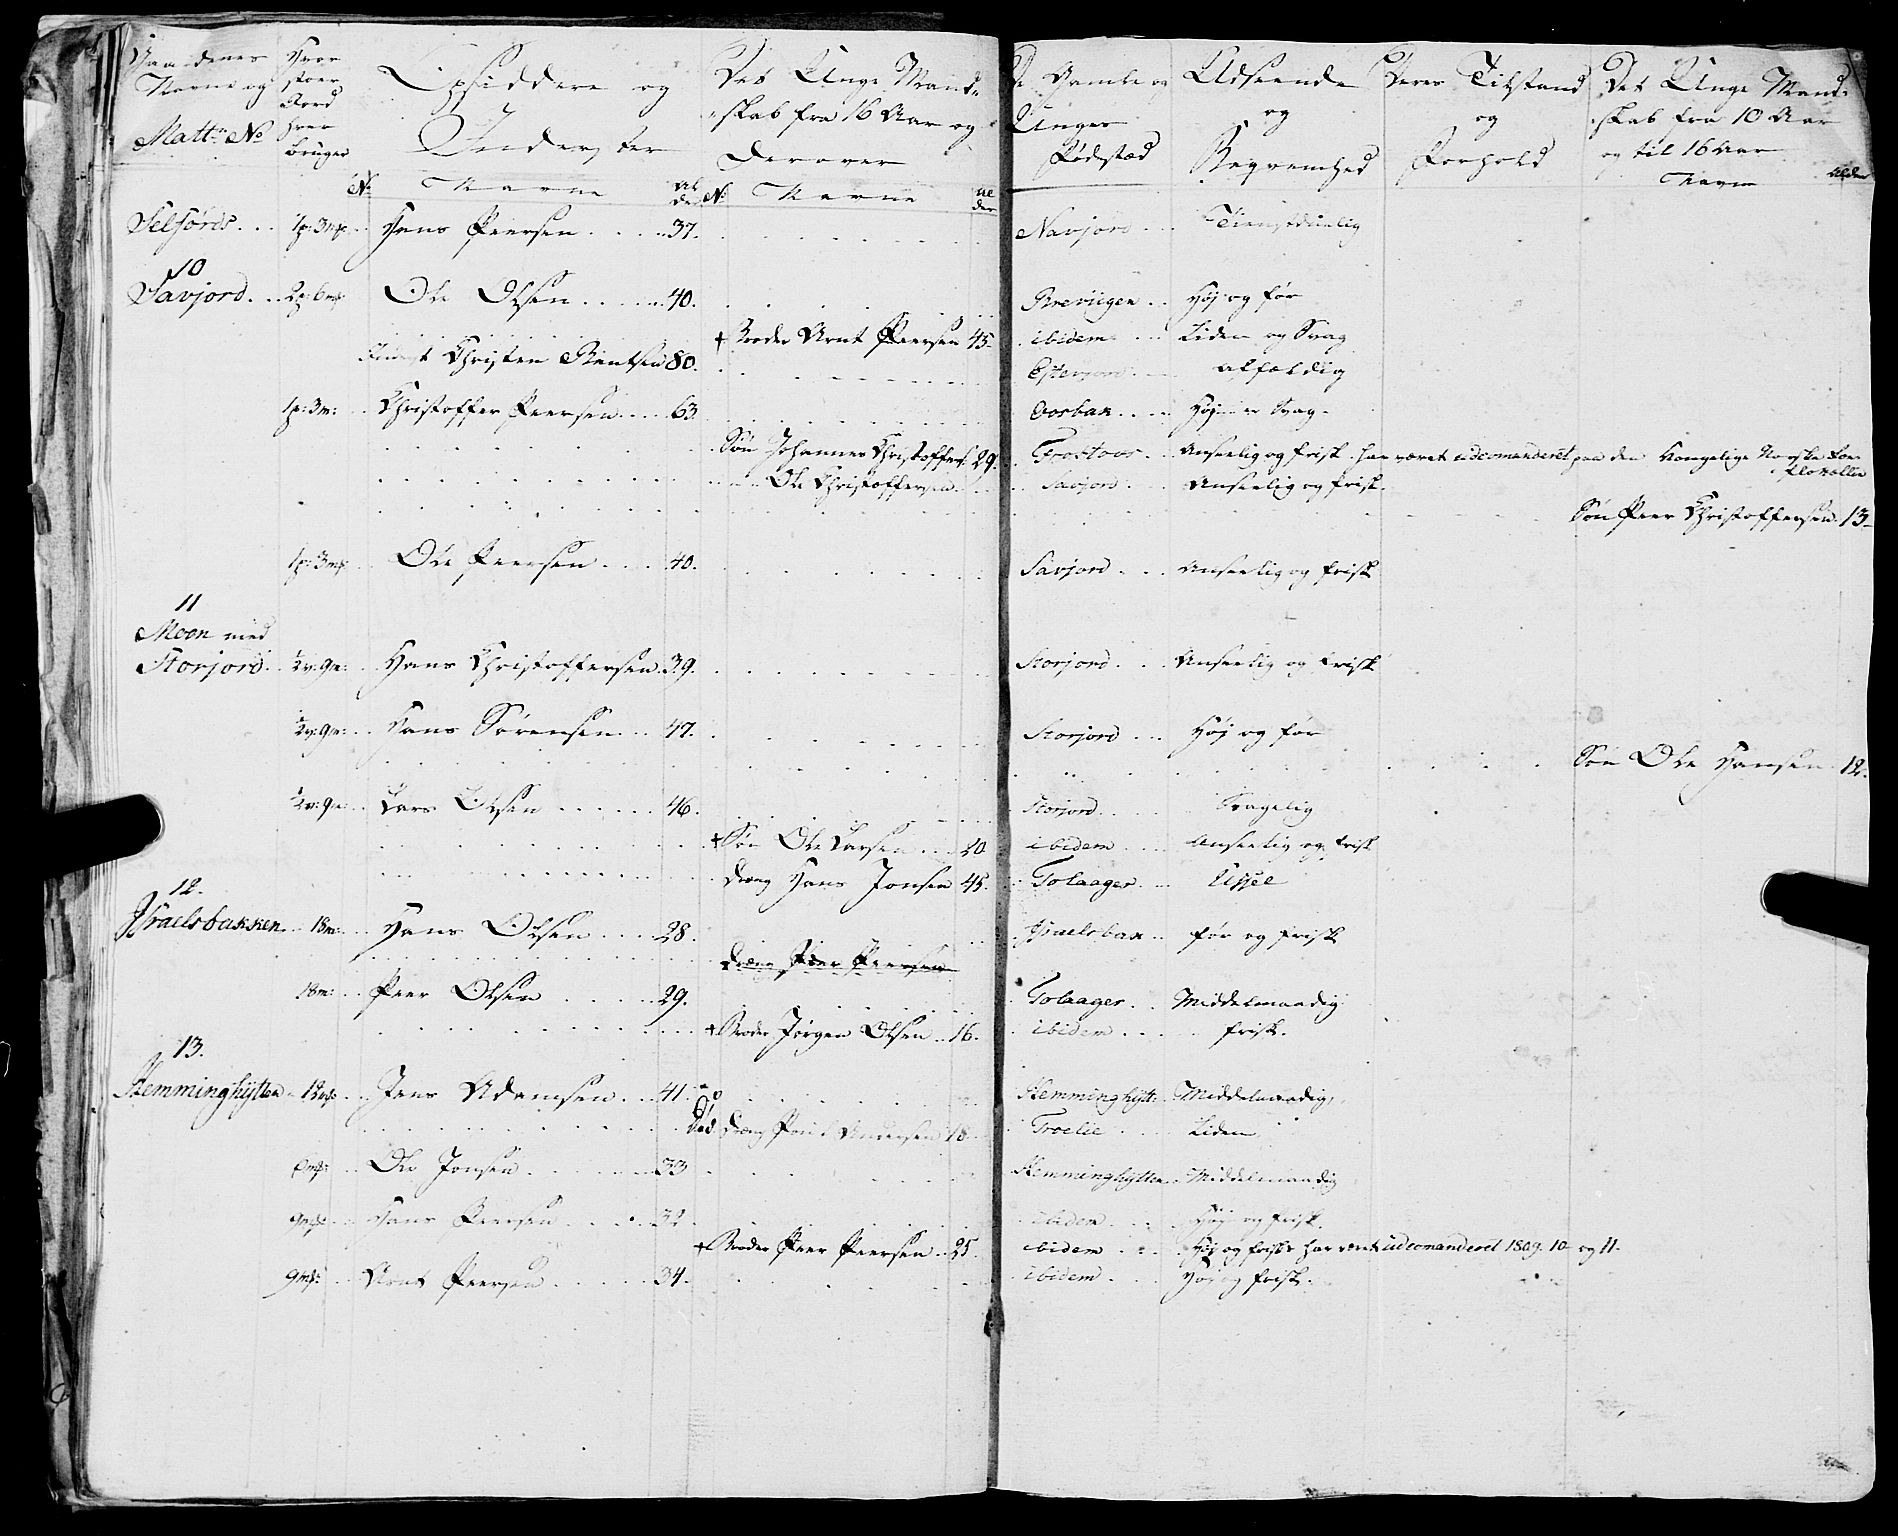 Gaardenes Navne og Matr: No
Hvor stoer Jord hver bruger
Opsiddere og Inderster
Det Unge Mandskab fra 16 Aar og derover
De Gamle og Unges Fødsted
Udseende og Beqvemhed
Deres Tilstand og Forhold
Det Unge Mandskab fra 10 Aar og til 16 Aar
No Navne Alder No Navne Alder Navne Alder
Selfords 1p: 3mk Hans Peersen 37. Navjord Tienstduelig
10
Savjord 2p: 6mk Ole Olsen 40. Breviigen Høj og før
+ Broder Arnt Peersen 45 ibidem Liden og Svag
Christen Bentsen 80. alfældig
1p: 3m: Christoffer Peersen 63 Høj Svag
Søn Johannes Christoffers: 29. Anseelig og frisk har været udcomanderet paa den Kongelige Norske
flotallie
Ole Christoffersen Savjord Anseelig og frisk.
Søn Peer Christoffersen 13
1p: 3mk Ole Peersen 40. Savjord Anseelig og frisk
11
Moen med
Storjord ½v: 9m: Hans Christoffersen 39. Storjord Anseelig og frisk
½v: 9m: Hans Sørensen 47. Storjord Høj og før
Søn Ole Hansen 12.
½v: 9m: Lars Olsen 46. Storjord Svagelig
+ Søn Ole Larsen 20 ibidem Anseelig og frisk
Dreng Hans Jonsen 45. Tolaager Ussel
12.
Israelsbakken 18m: Hans Olsen 28. Israelsbak før og frisk
Dreng Peer Peersen
18m: Peer Olsen 29. Tolaager Middelmaadig
+ Broder Jørgen Olsen 16. ibidem frisk.
13.
Hemminghytten 12mk Jens Adamsen 41. Hemminghytt: Middelmaadig
Død Dreng Poul Andersen 18 Troelie Liden
6mk: Ole Jonsen 33 Hemminghytten Middelmaadig
9mk: Hans Peersen 32 ibidem Høj og frisk.
+ Broder Peer Peersen 25 ibidem Høj og frisk har været udcomanderet 1809. 10 og 11.
9mk: Arnt Peersen 34. ibidem Høj og frisk.